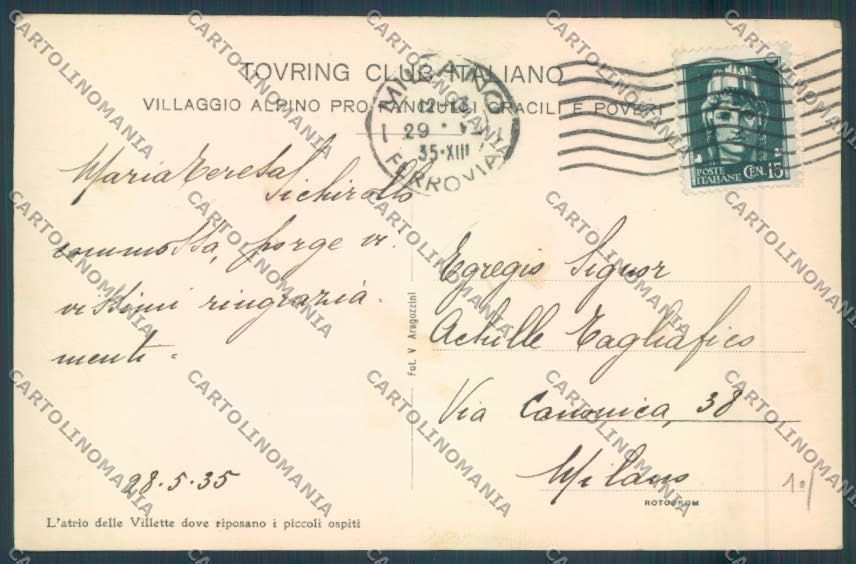 TOVRING CLUB ITALIANO
VILLAGGIO ALPINO PRO FANCIULLI GRACILI E POVERI
MILANO
12-13
29 · V
35·XIII
FERROVIA
POSTE
ITALIANE CEN. 15
Maria Teresa
Sichirollo
commossa, porge vi-
vissimi ringrazia-
menti.
28.5.35
L'atrio delle Villette dove riposano i piccoli ospiti
Fot. V Aragozzini
Egregio Signor
Achille Tagliafico
Via Canonica, 38
Milano
ROTOCROM
CARTOLINOMANIA